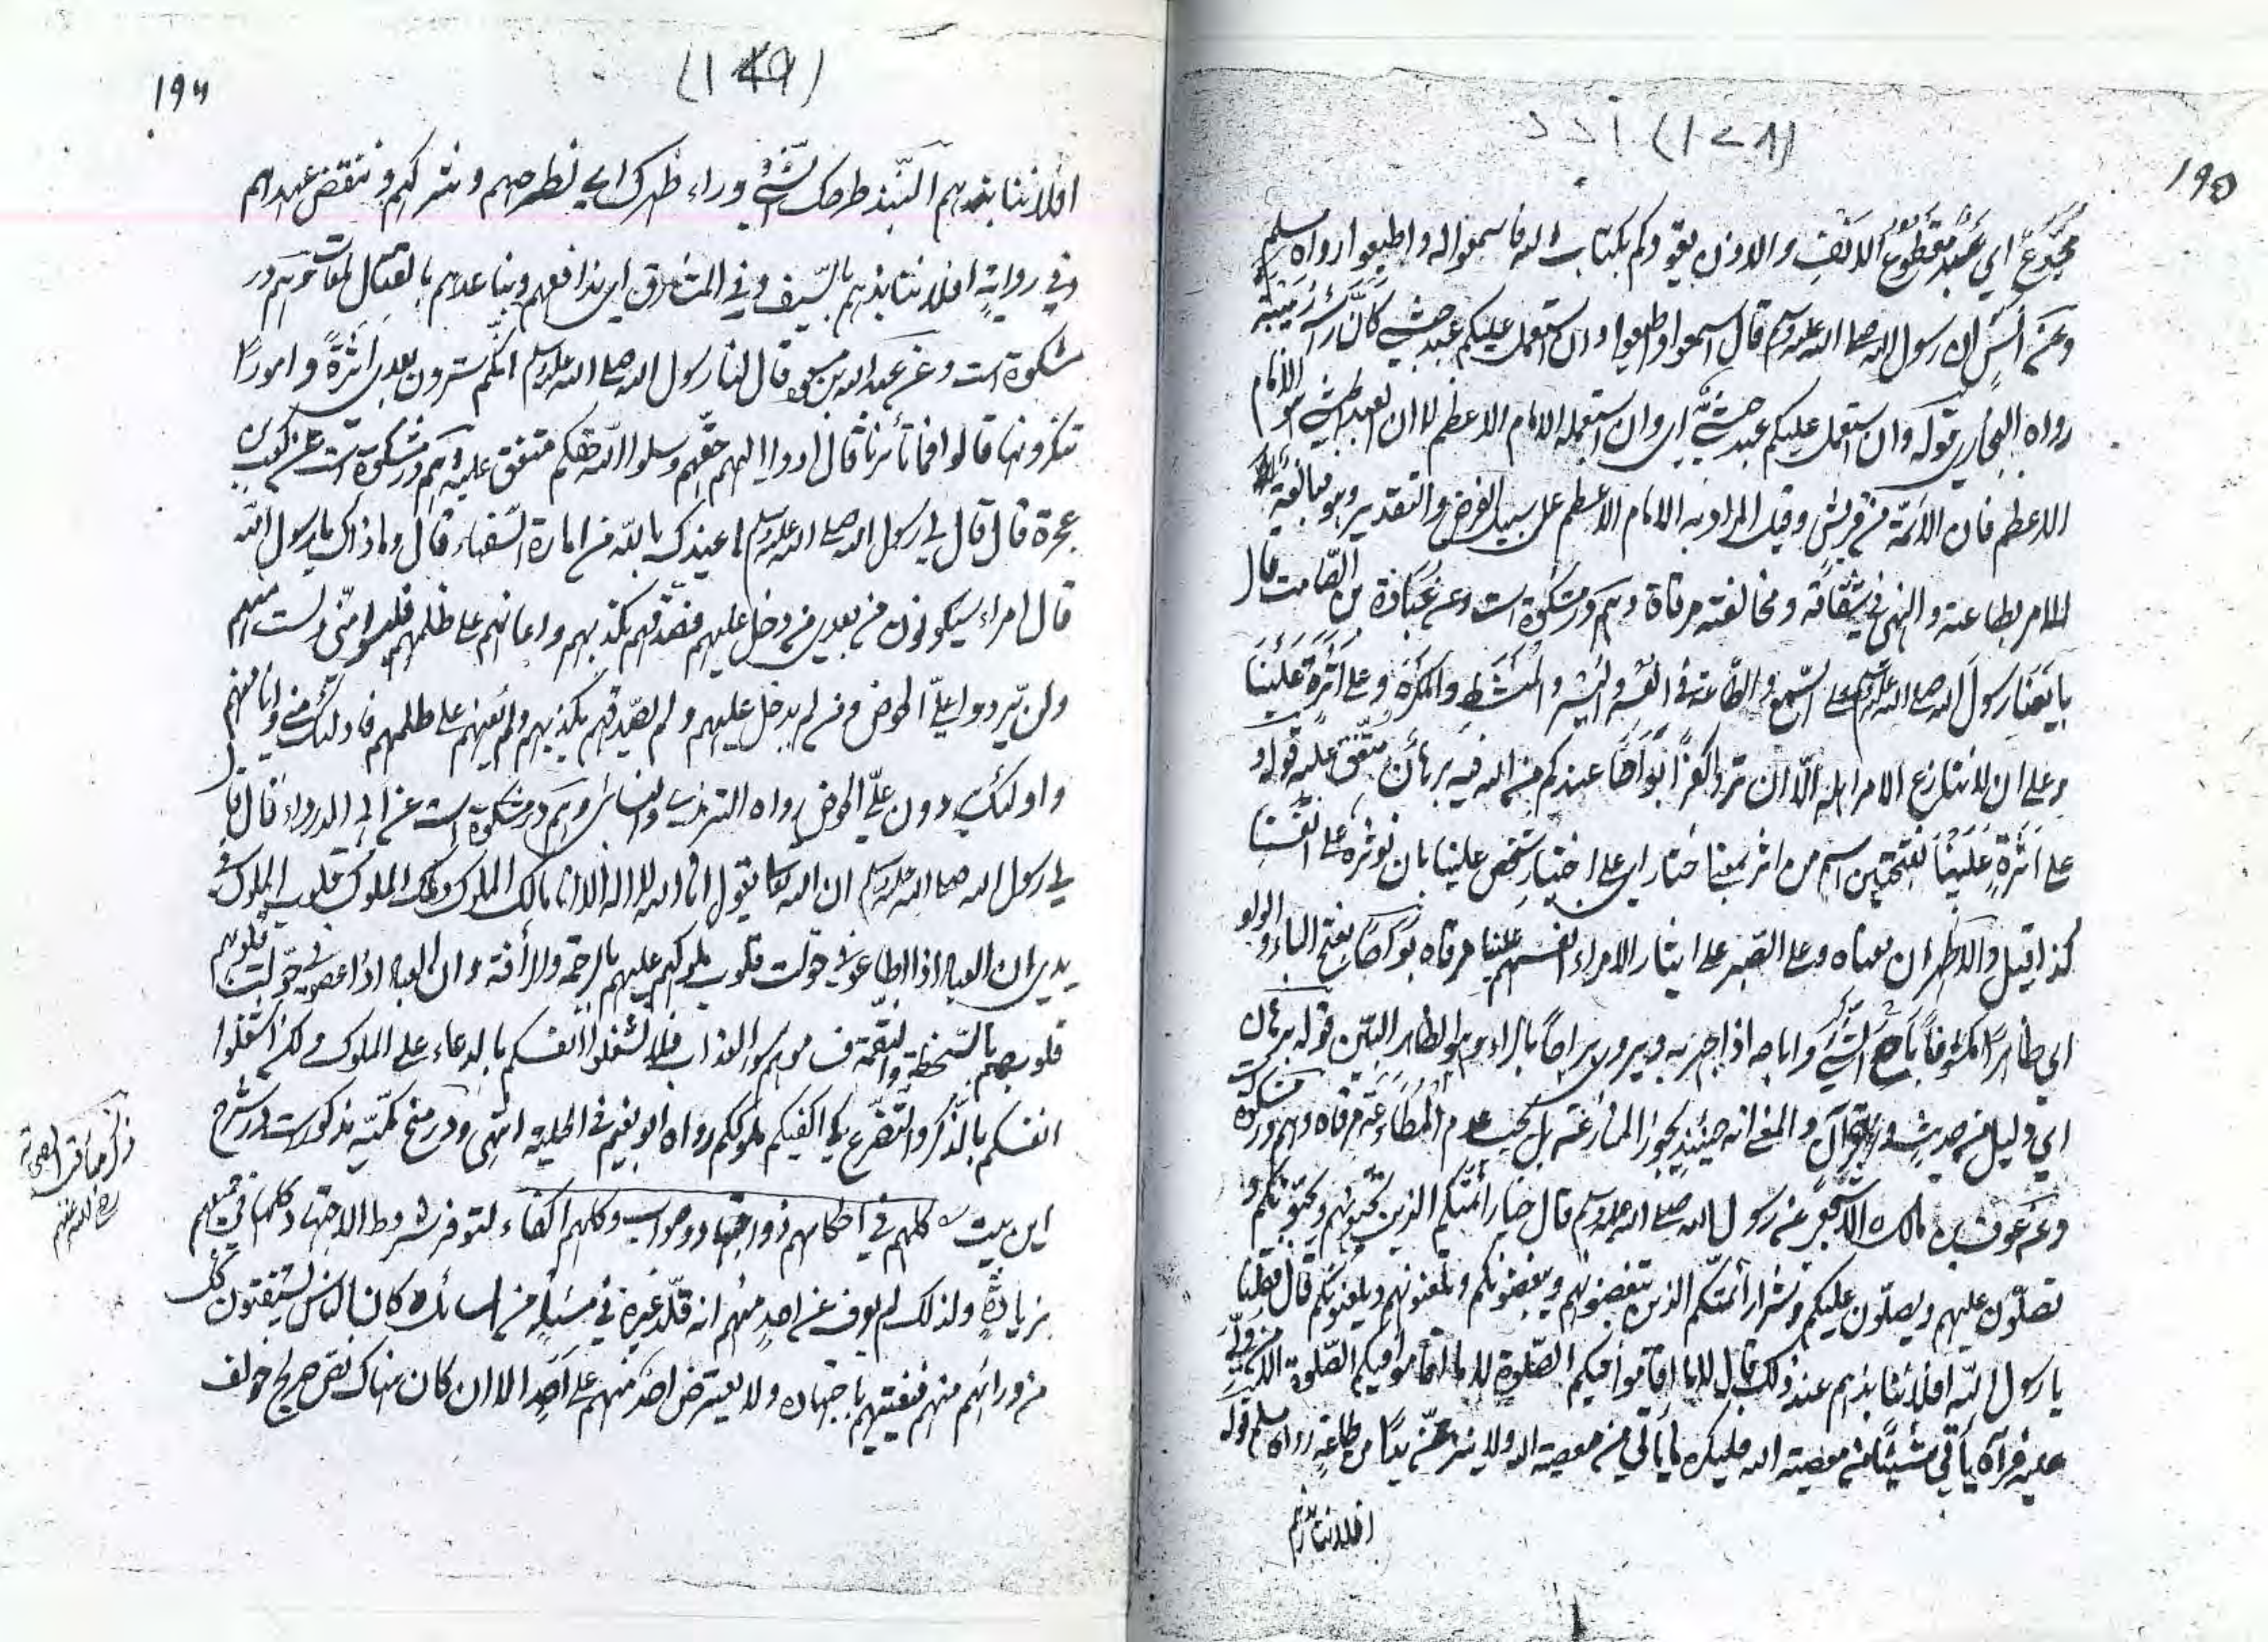 ۱۹۵
مجدّع اي عبد مقطوع الانف والاذن يقودكم بكتاب الله فاسمعوا له واطيعوا رواه مسلم
وعن أنس ان رسول الله صلى الله عليه وسلم قال اسمعوا واطيعوا وان استعمل عليكم عبد حبشي كأنّ رأسه زبيبة
رواه البخاري قوله وان استعمل عليكم عبد حبشيّ اي وان استعمله الامام الاعظم لا ان العبد الحبشي هو الامام
الاعظم فان الأئمّة من قريش وقيل المراد به الامام الاعظم على سبيل الفرض والتقدير وهو مبالغة في
الامر بطاعته والنهي عن شقاقه ومخالفته مرقاة وهم در مشكوة است وعن عبادة بن الصّامت قال
بايعنا رسول الله صلى الله عليه وسلم على السّمع والطّاعة في العسر واليسر والمنشط والمكره وعلى أثرة علينا
وعلى ان لا ننازع الامر اهله الّا ان تروا كفرًا بواحًا عندكم من الله فيه برهان متّفق عليه قوله و
على أثرةٍ علينا بفتحتين اسم من اثر بمعنى اختار اي على اختيار شخص علينا بان نوثره على انفسنا
كذا قيل والاظهر ان معناه وعلى الصّبر على ايثار الامراء انفسهم علينا مرقاه بواحًا بفتح الباء والواو
اي ظاهرًا مكشوفًا باح الشّيء واباحه اذا جهر به ويروى براحًا بالراء وهو الظاهر البيّن قوله برهان
اي دليل من حديث او قرآن والمعنى انه حينئذٍ يجوز المنازعة بل يجب عدم المطاوعة مرقاه وهم در مشكوة است
وعن عوف بن مالك الاشجعي عن رسول الله صلى الله عليه وسلم قال خيار أئمّتكم الذين تحبّونهم ويحبّونكم و
تصلّون عليهم ويصلّون عليكم وشرار أئمّتكم الذين تبغضونهم ويبغضونكم وتلعنونهم ويلعنونكم قال قلنا
يا رسول اللّه افلا ننابذهم عند ذلك قال لا ما اقاموا فيكم الصّلوة لا ما اقاموا فيكم الصّلوة الا من ولّي
عليه فرآه يأتي شيئًا من معصية الله فليكره ما يأتي من معصية الله ولا ينزعنّ يدًا من طاعةٍ رواه مسلم قوله
افلا ننابذهم
۱۹۶
افلا ننابذهم النّبذ طرحك الشّيء وراء ظهرك اي نطرحهم ونتركهم وننقض عهدهم
وفي روايةٍ افلا ننابذهم بالسّيف وفي المشارق اي ندافعهم ونباعدهم بالقتال وهم در
مشكوة است وعن عبد الله بن مسعود قال لنا رسول الله صلى الله عليه وسلم انّكم سترون بعدي أثرةً وامورًا
تنكرونها قالوا فما تأمرنا قال ادّوا اليهم حقّهم وسلوا اللّه حقّكم متفق عليه وهم در مشكوة است عن كعب بن
عجرة قال قال لي رسول الله صلى الله عليه وسلم اعيذك باللّه من امارة السّفهاء قال وما ذاك يا رسول اللّه
قال امراء سيكونون من بعدي من دخل عليهم فصدّقهم بكذبهم واعانهم على ظلمهم فليسوا منّي ولست منهم
ولن يّردوا عليّ الحوض ومن لم يدخل عليهم ولم يصدّقهم بكذبهم ولم يعنهم على ظلمهم فاولئك منّي وانا منهم
واولئك يردون عليّ الحوض رواه الترمذي والنسائي وهم در مشكوة است عن ابي الدرداء قال قا
ل رسول الله صلى الله عليه وسلم ان الله تعالى يقول انا الله لا اله الا انا مالك الملوك وملك الملوك قلوب الملوك في
يدي ان العباد اذا اطاعوني حولت قلوب ملوكهم عليهم بالرحمة والرأفة وان العباد اذا عصوني حوّلت قلوبهم
قلوبهم بالسّخطة والنّقمة فساموهم سوء العذاب فلا تشغلوا انفسكم بالدعاء على الملوك ولكن اشغلوا
انفسكم بالذّكر والتّضرّع كي اكفيكم ملوككم رواه ابو نعيم في الحلية انتهى ودر منح مكّيّه مذكورست در شرح
اين بيت كلهم في احكامهم ذو اجتهاد وصواب وكلهم اكفاء لتوفر شروط الاجتهاد كلها في جميعهم
بزيادة ولذلك لم يعرف عن احدٍ منهم انه قلّد غيره في مسئلةٍ من المسائل كان الناس يستفتون كل
من ورائهم منهم فيفتيهم باجتهاده ولا يعترض احدٌ منهم على احدٍ الا ان كان هناك نص صريح خولف
ذكر مناقب الصحابة
رضي الله عنهم